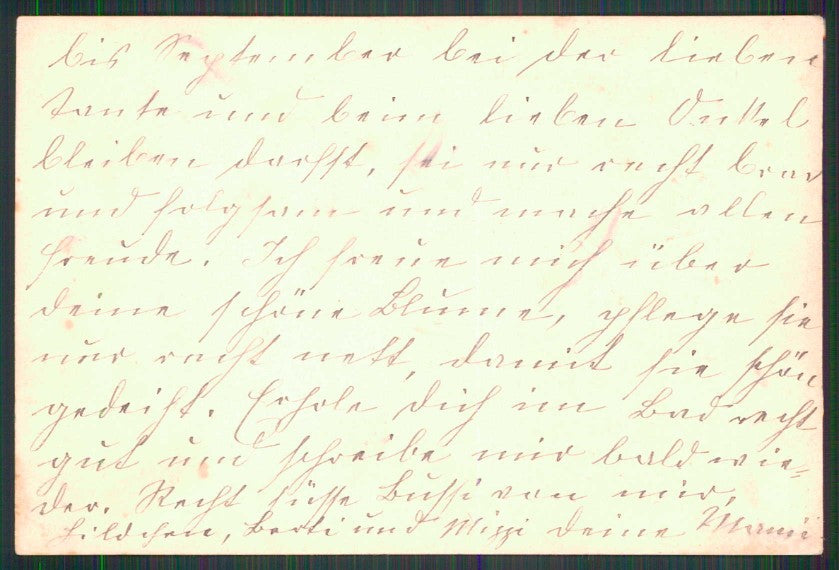 bis September bei der lieben
Tante und beim lieben Onkel
bleiben darfst, sei nur recht brav
und folgsam und mache allen
Freude. Ich freue mich über
deine schöne Blume, pflege sie
nur recht nett, damit sie schön
gedeiht. Erhole dich im Bad recht
gut und schreibe mir bald wie-
der. Recht süsse Bussi von mir,
Lildchen, Berti und Mizzi deine Mami